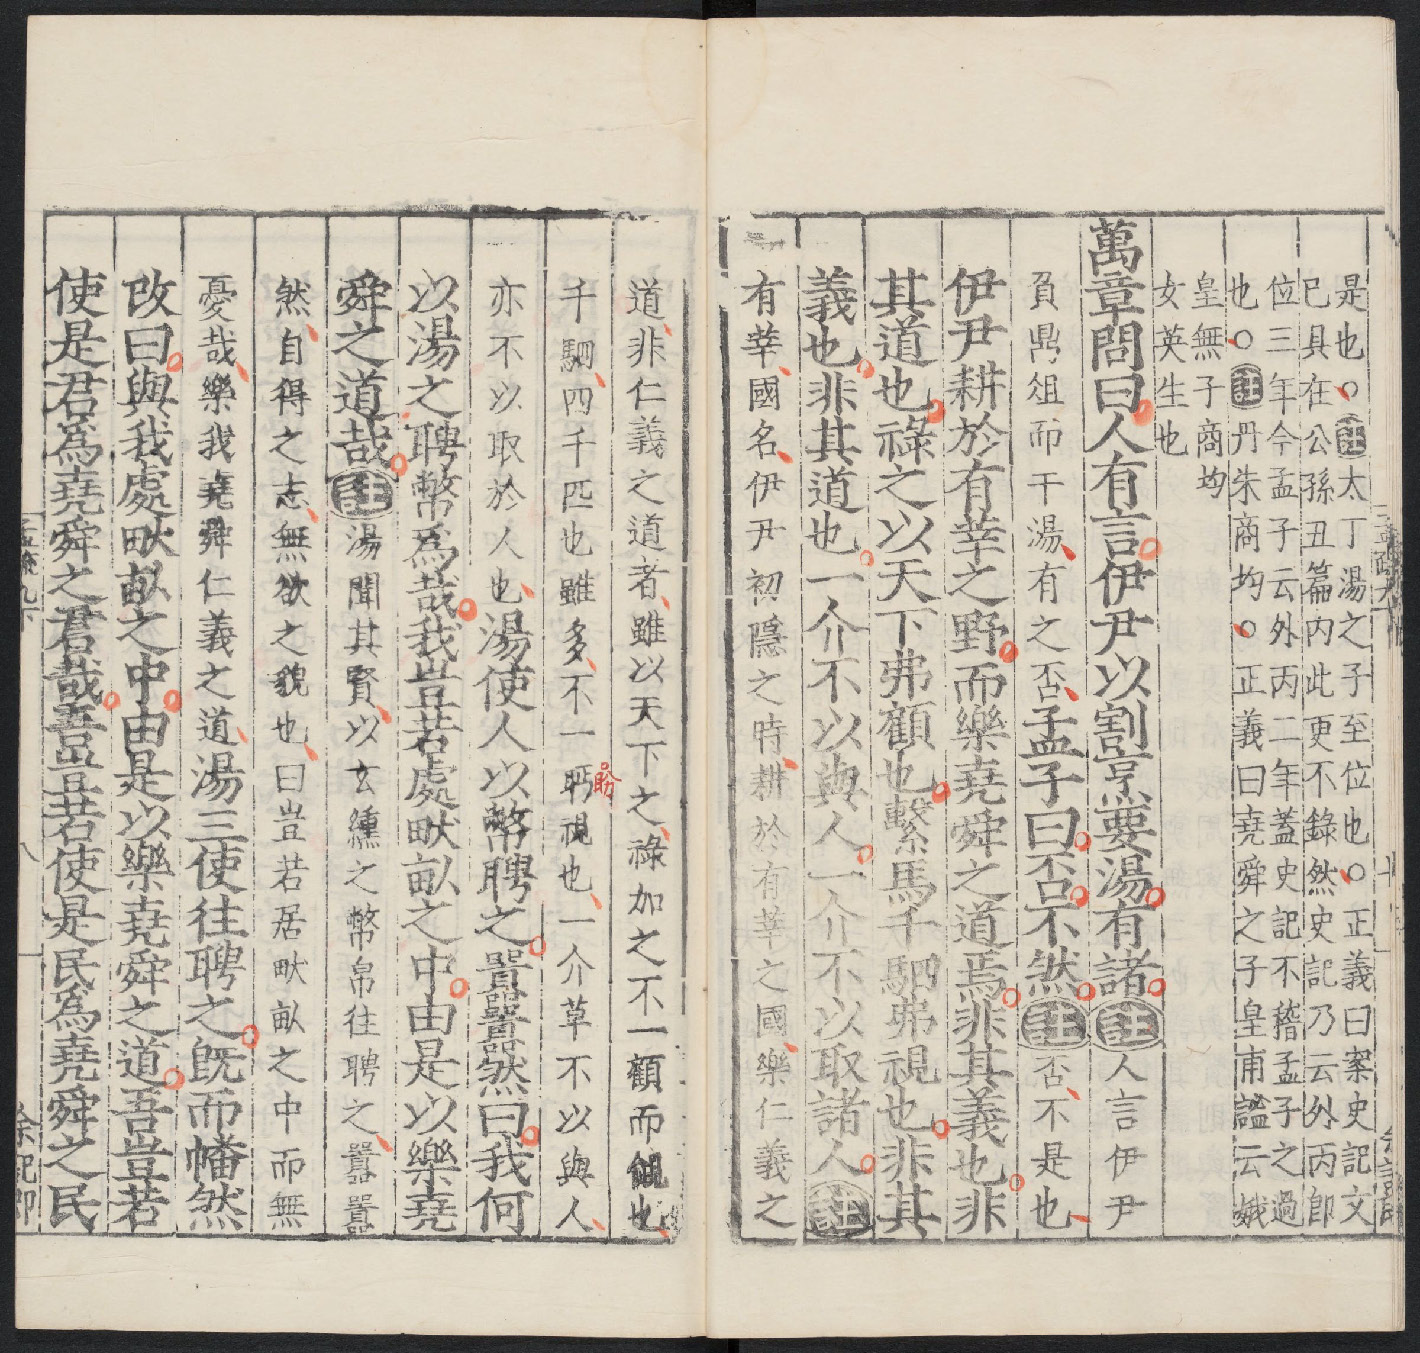 是也○註太丁湯之子至位也○正義曰案史記文
已具在公孫丑篇内此更不錄然史記乃云外丙即
位三年今孟子云外丙二年蓋史記不稽孟子之過
也○註丹朱商均○正義曰堯舜之子皇甫謐云娥
皇無子商均
女英生也
萬章問曰人有言伊尹以割烹要湯有諸註人言伊尹
負鼎俎而干湯有之否孟子曰否不然註否不是也
伊尹耕於有莘之野而樂堯舜之道焉非其義也非
其道也祿之以天下弗顧也繫馬千駟弗視也非其
義也非其道也一介不以與人一介不以取諸人註
有莘國名伊尹初隱之時耕於有莘之國樂仁義之
道非仁義之道者雖以天下之祿加之不一顧而覦也
千駟四千匹也雖多不一眄視也一介草不以與人
盼
亦不以取於人也湯使人以幣聘之囂囂然曰我何
以湯之聘幣爲哉我豈若處畎畝之中由是以樂堯
舜之道哉註湯聞其賢以玄纁之幣帛往聘之囂囂
然自得之志無欲之貌也曰豈若居畎畝之中而無
憂哉樂我堯舜仁義之道湯三使往聘之旣而幡然
改曰與我處畎畝之中由是以樂堯舜之道吾豈若
使是君爲堯舜之君哉吾豈若使是民爲堯舜之民